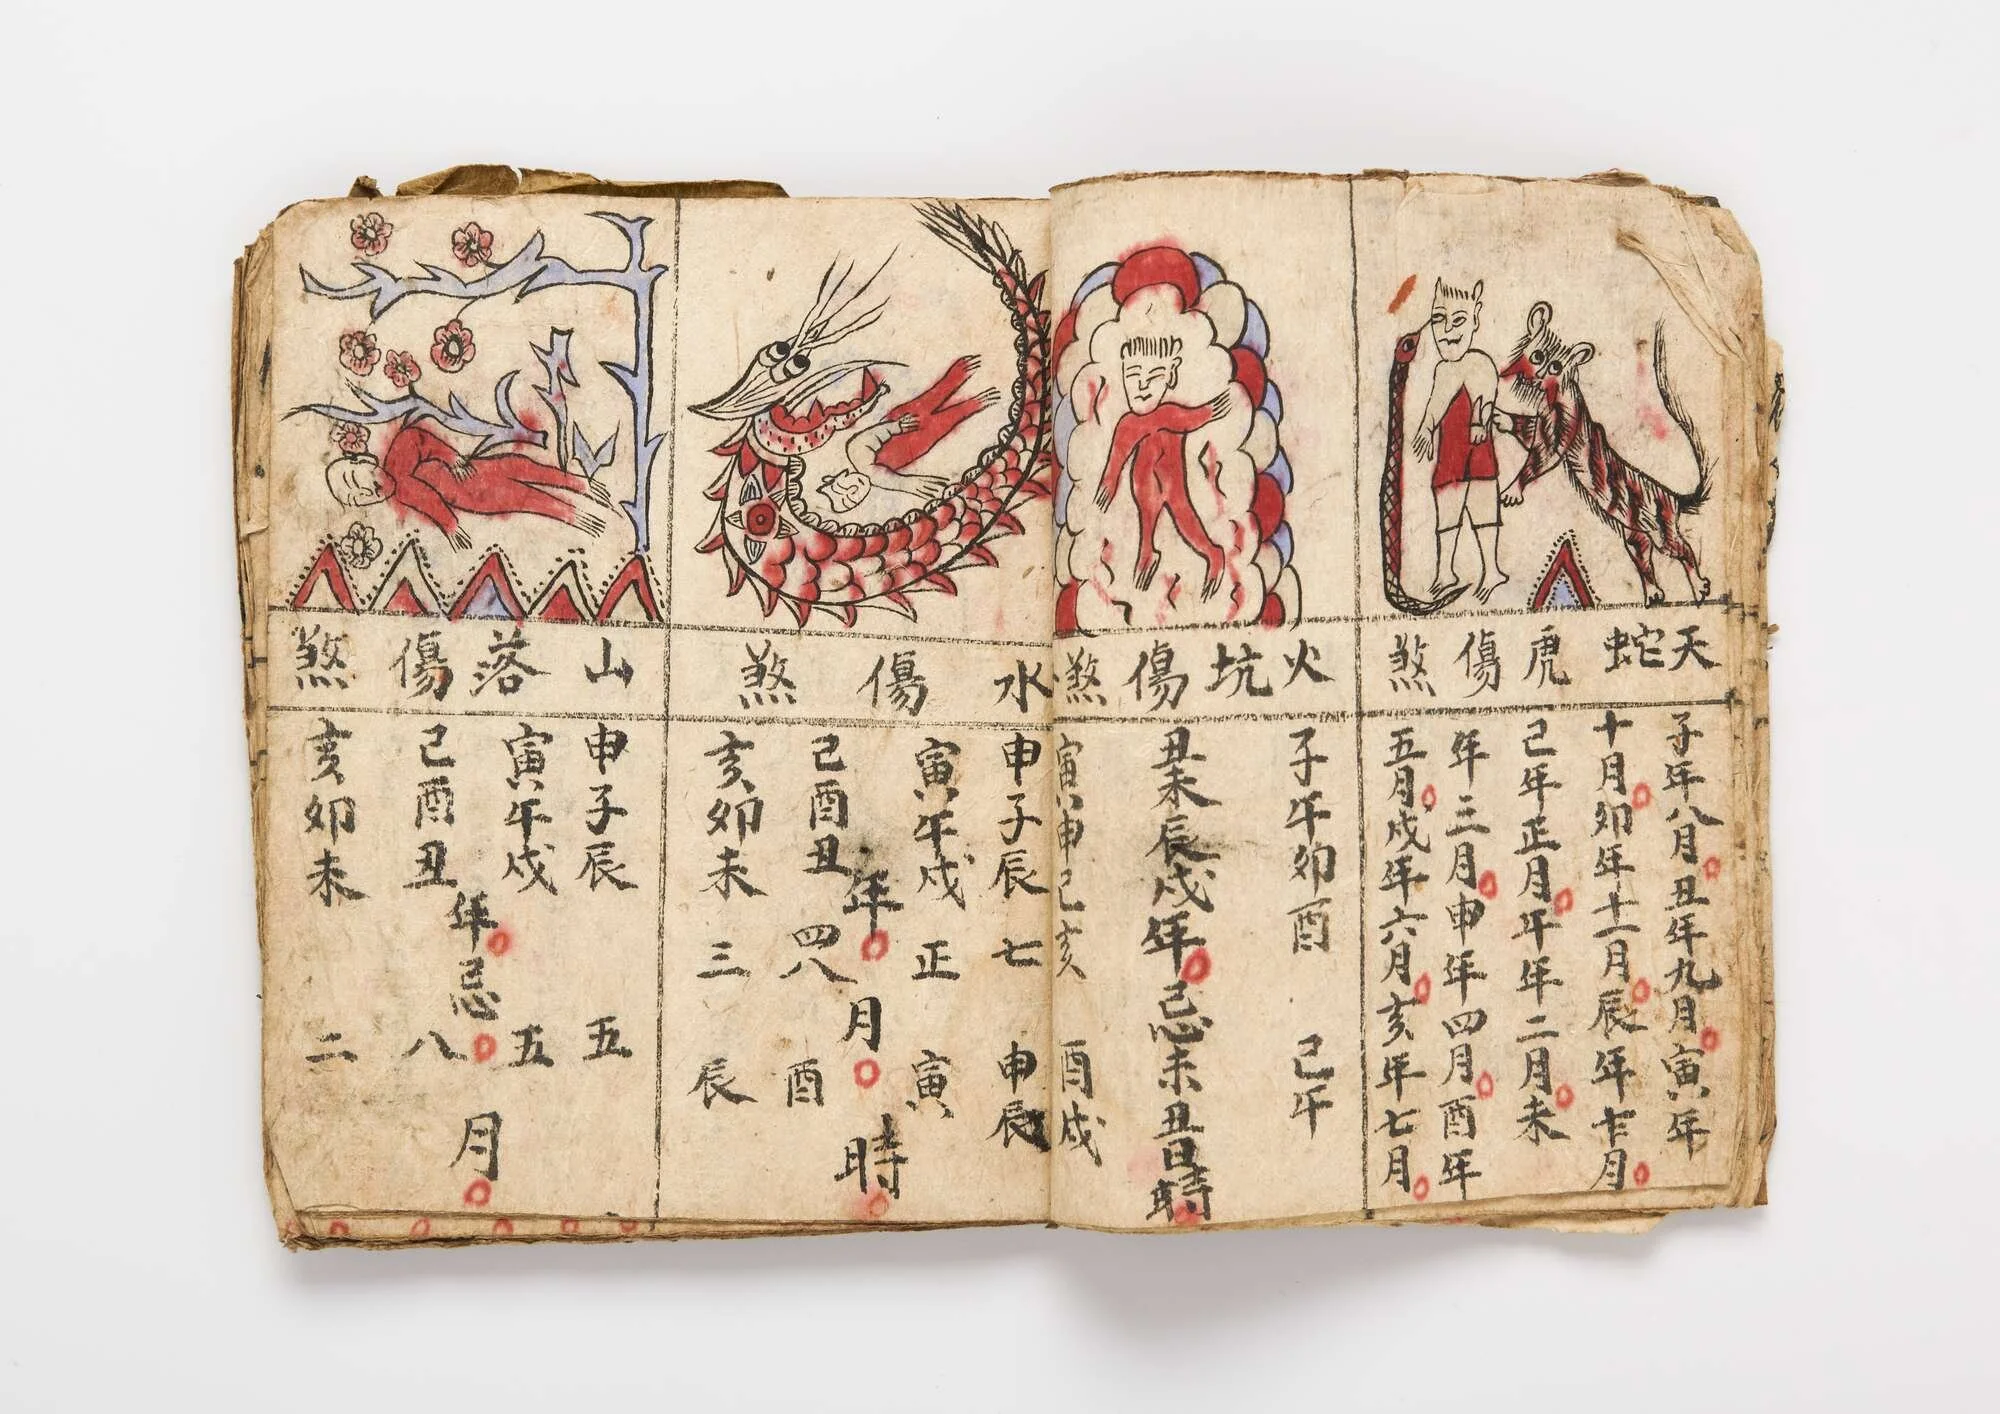 天蛇虎傷煞
子年八月丑年九月寅年
十月卯年十一月辰年十二月
巳年正月午年二月未
年三月申年四月酉年
五月戌年六月亥年七月
火坑傷煞
子午卯酉 巳午
丑未辰戌年忌未丑日時
寅申巳亥 酉戌
水傷煞
申子辰 七 申辰
寅午戌 正 寅
年月時
巳酉丑 四八 酉
亥卯未 三 辰
山落傷煞
申子辰 五
寅午戌 五
年忌月
巳酉丑 八
亥卯未 二